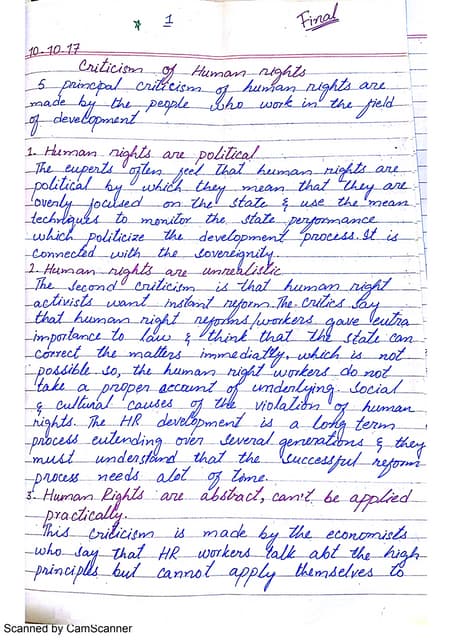 1
Final
10-10-17
Criticism of Human rights
5 principal criticism of human rights are
made by the people who work in the field
of development
1. Human rights are political
The experts often feel that human rights are
political by which they mean that they are
overly focused on the state & use the mean
techniques to monitor the state performance
which politicize the development process. It is
connected with the sovereignity.
2. Human rights are unrealistic
The second criticism is that human right
activists want instant reform. The critics say
that human right reforms/workers gave extra
importance to law & think that the state can
correct the matters immediatly, which is not
possible so, the human right workers do not
take a proper account of underlying social
& cultural causes of the violation of human
rights. The HR development is a long term
process extending over several generations & they
must understand that the successful reform
process needs alot of time.
3. Human Rights are abstract, can't be applied
practically.
This criticism is made by the economists
who say that HR workers talk abt the high
principles but cannot apply themselves to
Scanned by CamScanner